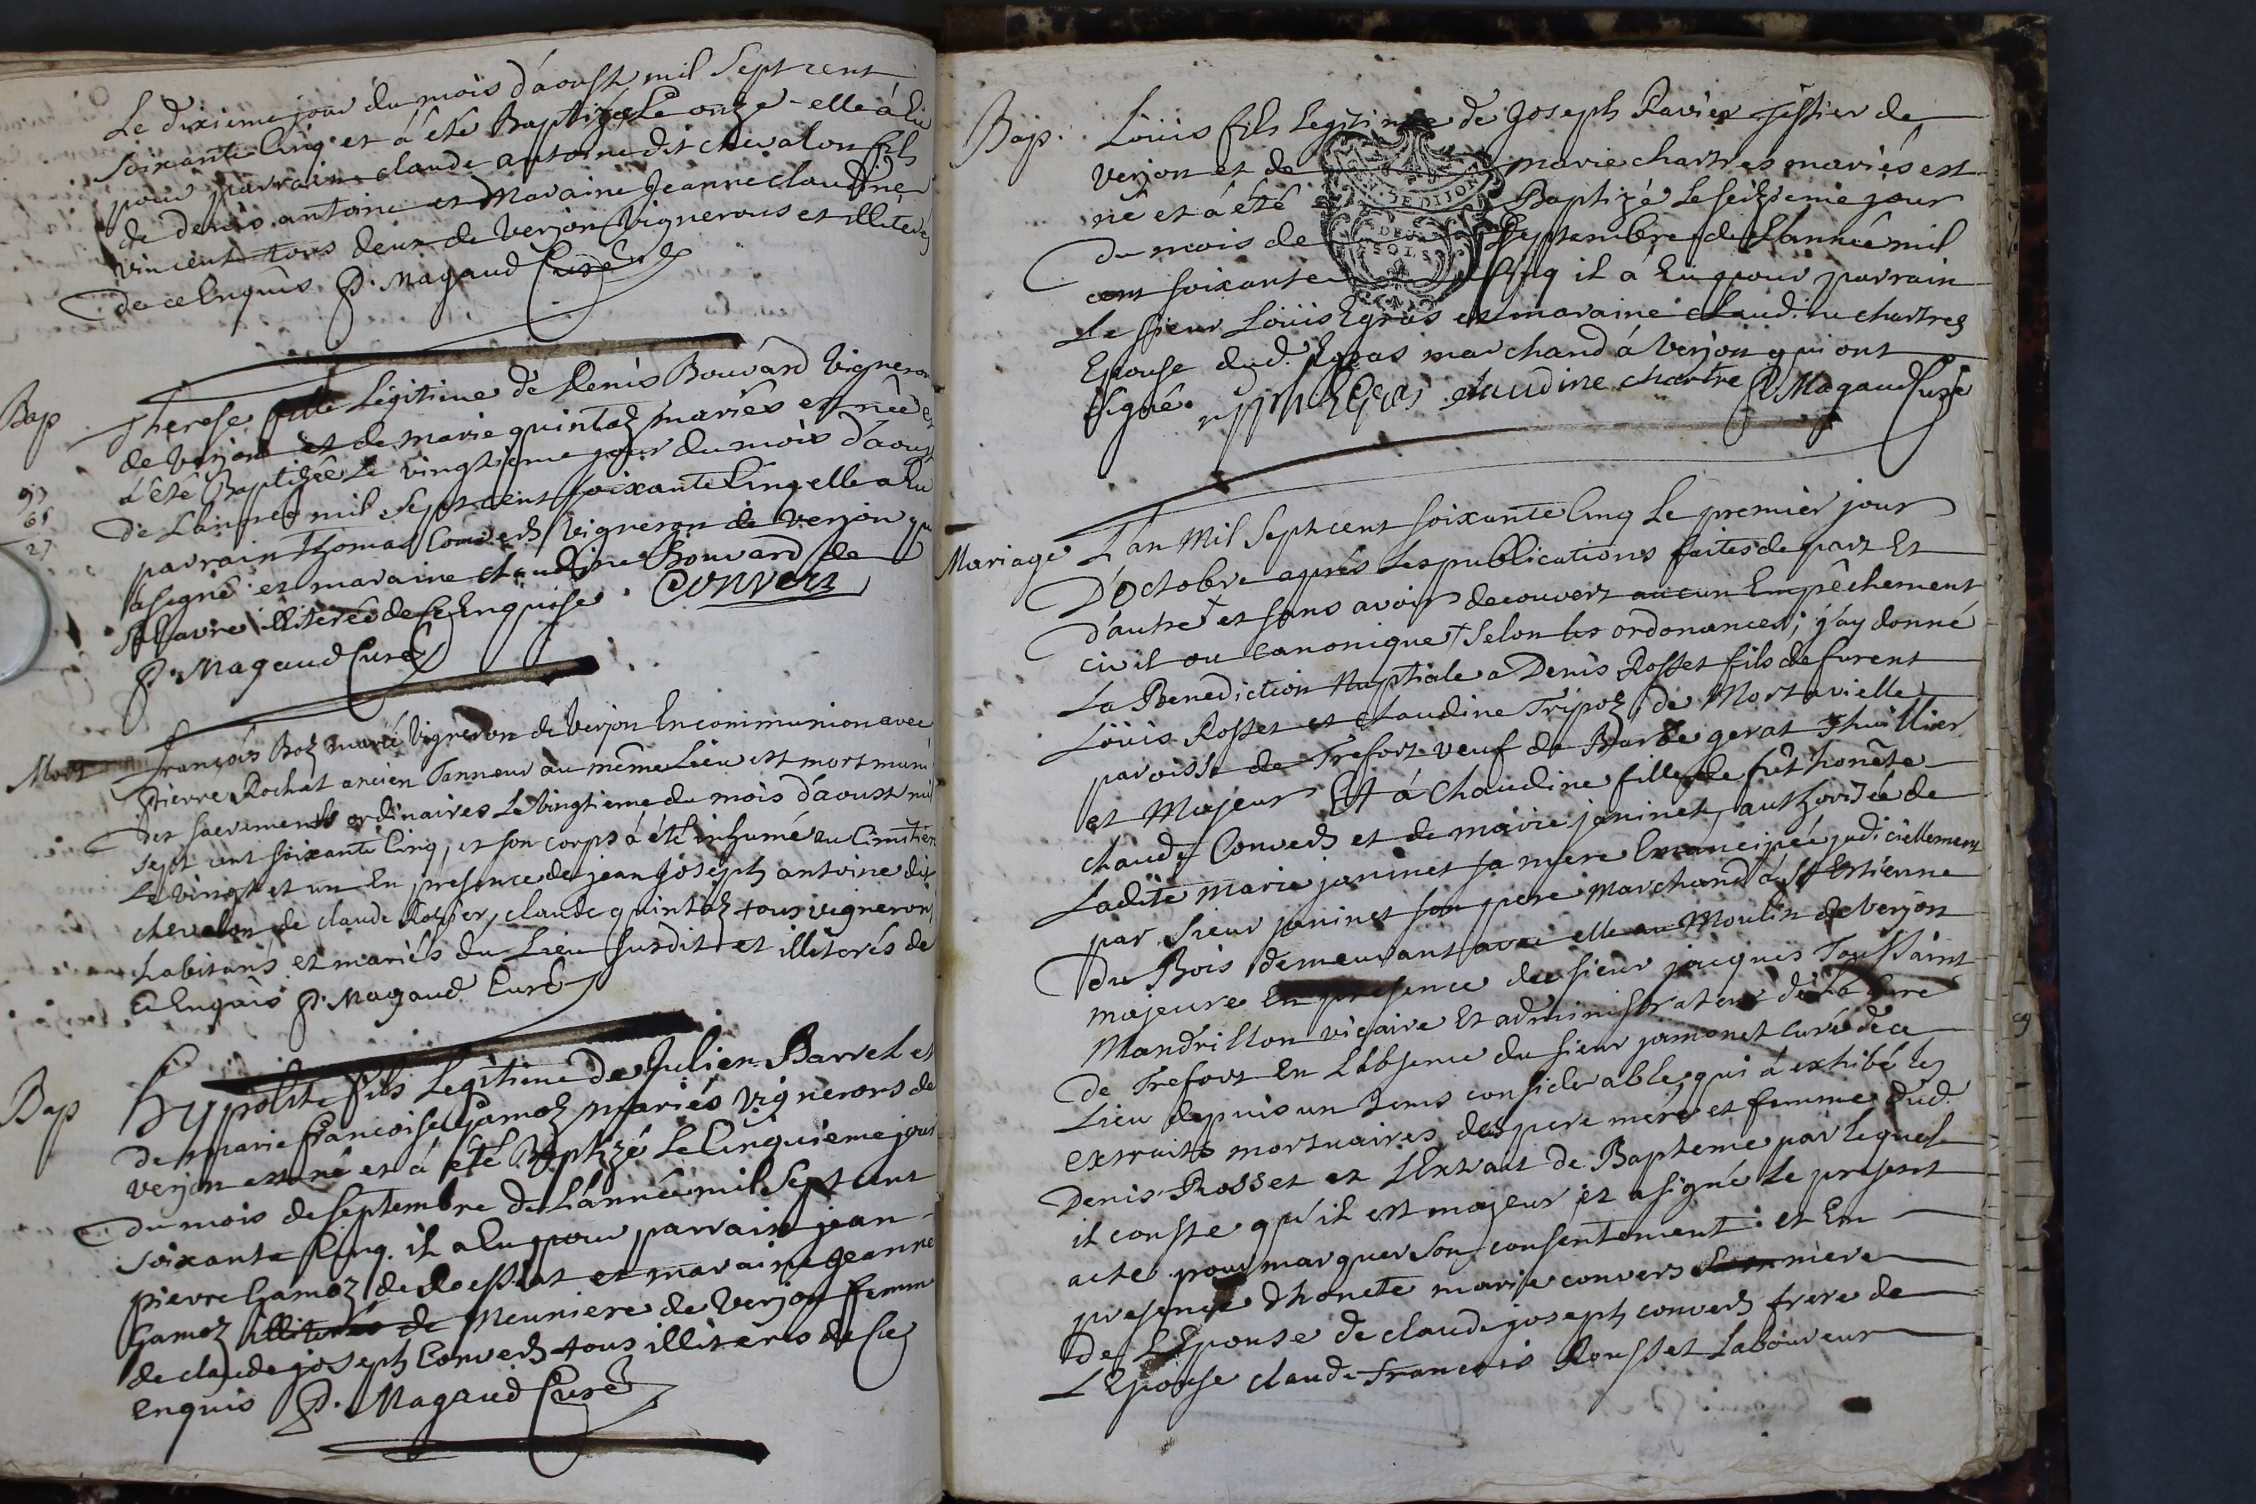 Le dixieme jour du mois d'aoust mil Sept cent
soixante Cinq et à été Baptizée Le onze elle à Eu
pour parrain claude antoine dit chevalon fils
de denis antoine et Maraine Jeanne claudine
vincent tous deux de verjon Vignerons et illiterés
de ce Enquis P. Magaud Curé
Bap
Therese fille Légitime de Denis Bouvard Vigneron
de Verjon et de marie quintaz mariés est née et
à été Baptizée Le vingtieme jour du mois d'aoust
de L'année mil Sept cent soixante Cinq elle a Eu
parrain Thomas Convers Vigneron de Verjon qui
a signé et maraine claudine Bouvard de
illiterée de Ce Enquise. Convers
P. Magaud Curé
97
68
27
Mort
François Boz marié Vigneron de Verjon En communion avec
pierre Rochat ancien Tanneur au même Lieu est mort muni
des sacrements ordinaires Le vingtieme du mois d'aoust mil
sept cent soixante Cinq, et son corps à été inhumé au Cimitiere
Le vingt et un En presence de jean joseph antoine dit
chevalon de claude Rozier, claude quintaz tous vignerons
habitans et mariés du Lieu susdit et illiterés de
ce Enquis P. Magaud Curé
Bap
hypolite fils Legitime de Julien Barret et
de marie françoise Gamoz mariés Vignerons de
verjon est né et à été Baptizé Le Cinquieme jour
du mois de septembre de L'année mil Sept cent
soixante Cinq. il a Eu pour parrain jean
pierre Gamoz de et maraine Jeanne
Gamoz illiterés de Meuniere de Verjon femme
de claude joseph Convers tous illiterés de ce
enquis P. Magaud Curé
Bap.
Loüis fils Legitime de Joseph Ravier Tessier de
verjon et de marie chartres mariés est
né et à été Baptizé Le seizieme jour
du mois de Septembre de L'année mil
cent soixante Cinq il à Eu pour parrain
Le sieur Loüis Egras et maraine claudine chartres
Epouse dud. Egras marchand à Verjon qui ont
signé. Egras claudine chartre P. Magaud Curé
DE DIJON
DEUX
SOLS
Mariage
L'an Mil Sept cent soixante Cinq Le premier jour
D'Octobre aprés Les publications faites de part Et
d'autre et sans avoir decouvert aucun Empêchement
civil ou Canonique Selon les ordonances; j'ay donné
La Benediction Nuptiale a Denis Rosset fils defurent
Loüis Rosset et claudine Tripoz de Mortavielle
paroisse de Trefort veuf de Barbe gerat Thuillier
et Majeur Et à Claudine fille de fût honête
claude Convers et de marie janinet, authorisée de
Ladite marie janinet sa mere Emancipée judiciellement
par sieur janinet son pere Marchand à St Estienne
du Bois demeurant avec elle au Moulin de Verjon
majeure En presence du sieur jacques Toussaint
Mandrillon vicaire Et administrateur de la Cure
de Trefort En L'absence du sieur jamonet Curé de ce
Lieu depuis un tems considerable, qui à exhibé les
extraits mortuaires des pere mere et femme dud.
Denis Rosset et L'Extrait de Bapteme par lequel
il conste qu'il est majeur et a signé Le present
acte pour marquer Son consentement: et En
presence d'honete marie convers mere
de L'Epouse de claude joseph convers frere de
L'Epouse claude François Rousset Laboureur